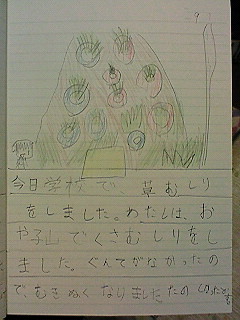 9
今日学校で、草むしり
をしました。わたしは、お
や子山でくさむしりをし
ました。ぐんてがなかったの
で、むきぬくなりました たのしかったです